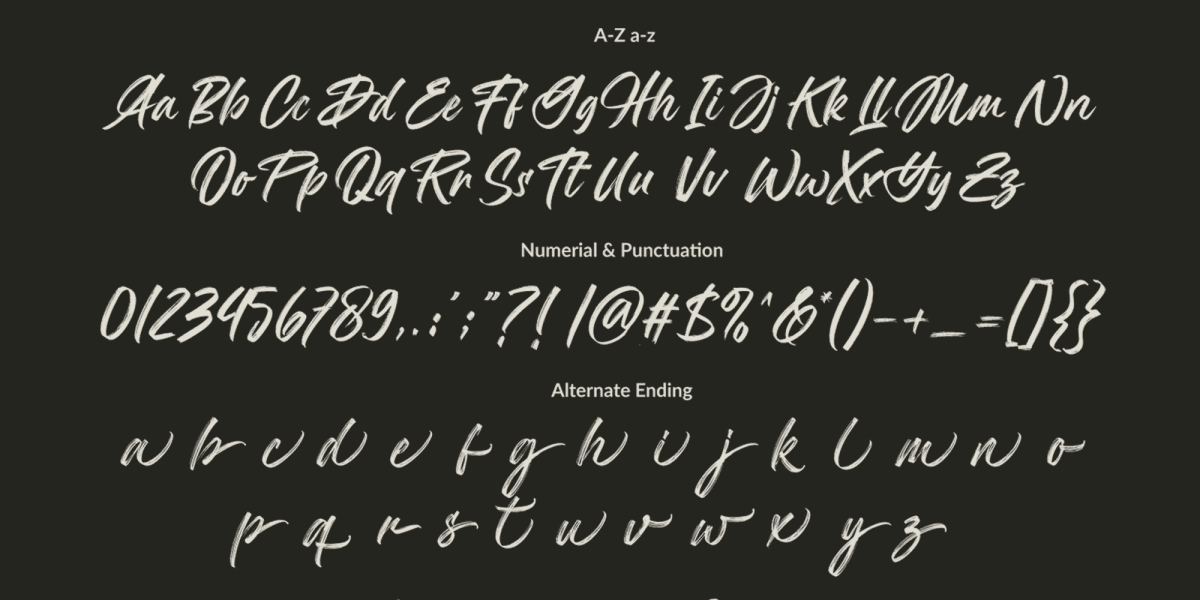 A-Z a-z
Aa Bb Cc Dd Ee Ff Gg Hh Ii Jj Kk Ll Mm Nn
Oo Pp Qq Rr Ss Tt Uu Vv Ww Xx Yy Zz
Numerial & Punctuation
0123456789,.:';"?! /@#$%^&*()-+_=[]{}
Alternate Ending
a b c d e f g h i j k l m n o
p q r s t u v w x y z